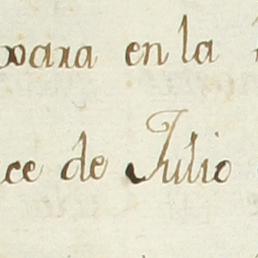 xara en la
ce de Julio